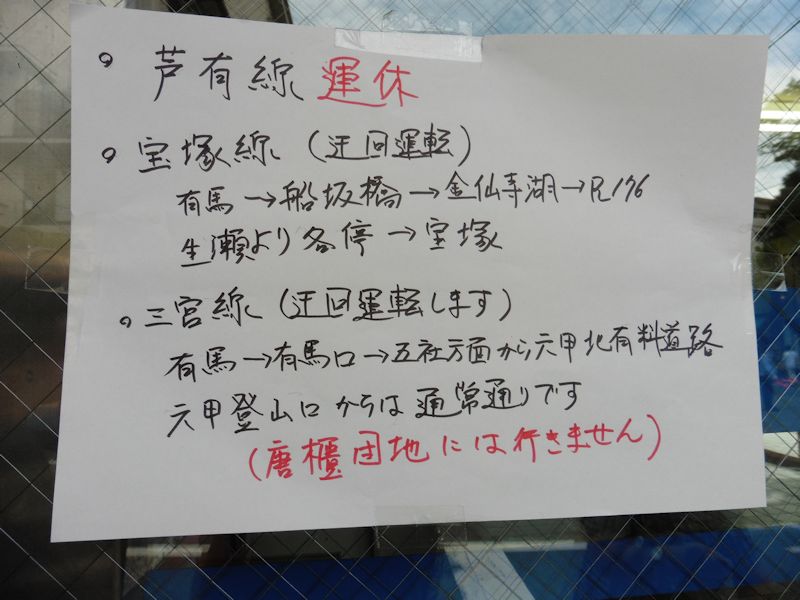 • 芦有線 運休
• 宝塚線 (迂回運転)
有馬→船坂橋→金仙寺湖→R176
生瀬より各停→宝塚
• 三宮線 (迂回運転します)
有馬→有馬口→五社方面から六甲北有料道路
六甲登山口からは通常通りです
(唐櫃団地には行きません)